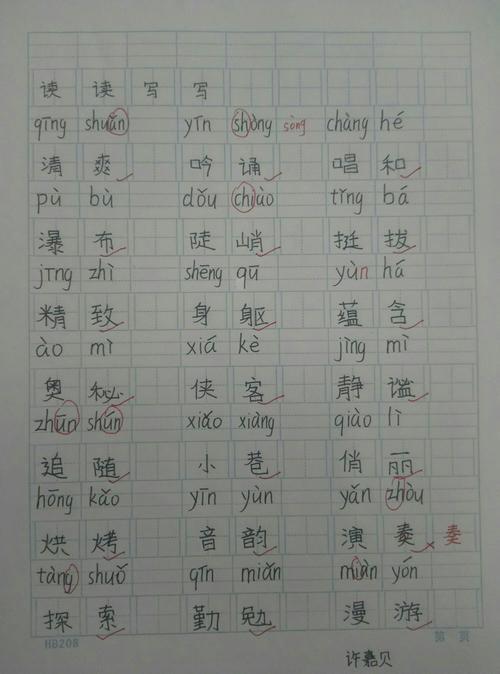 读 读 写 写
qīng shuǎn yīn shòng sòng chàng hé
清 爽 吟 诵 唱 和
pù bù dǒu chiào tǐng bá
瀑 布 陡 峭 挺 拔
jīng zhì shēng qū yùn há
精 致 身 躯 蕴 含
ào mì xiá kè jìng mì
奥 秘 侠 客 静 谧
zhūn shún xiǎo xiàng qiào lì
追 随 小 巷 俏 丽
hōng kǎo yīn yùn yǎn zhòu
烘 烤 音 韵 演 奏 奏
tàng shuǒ qīn miǎn miàn yón
探 索 勤 勉 漫 游
HB208 第 页
许嘉贝